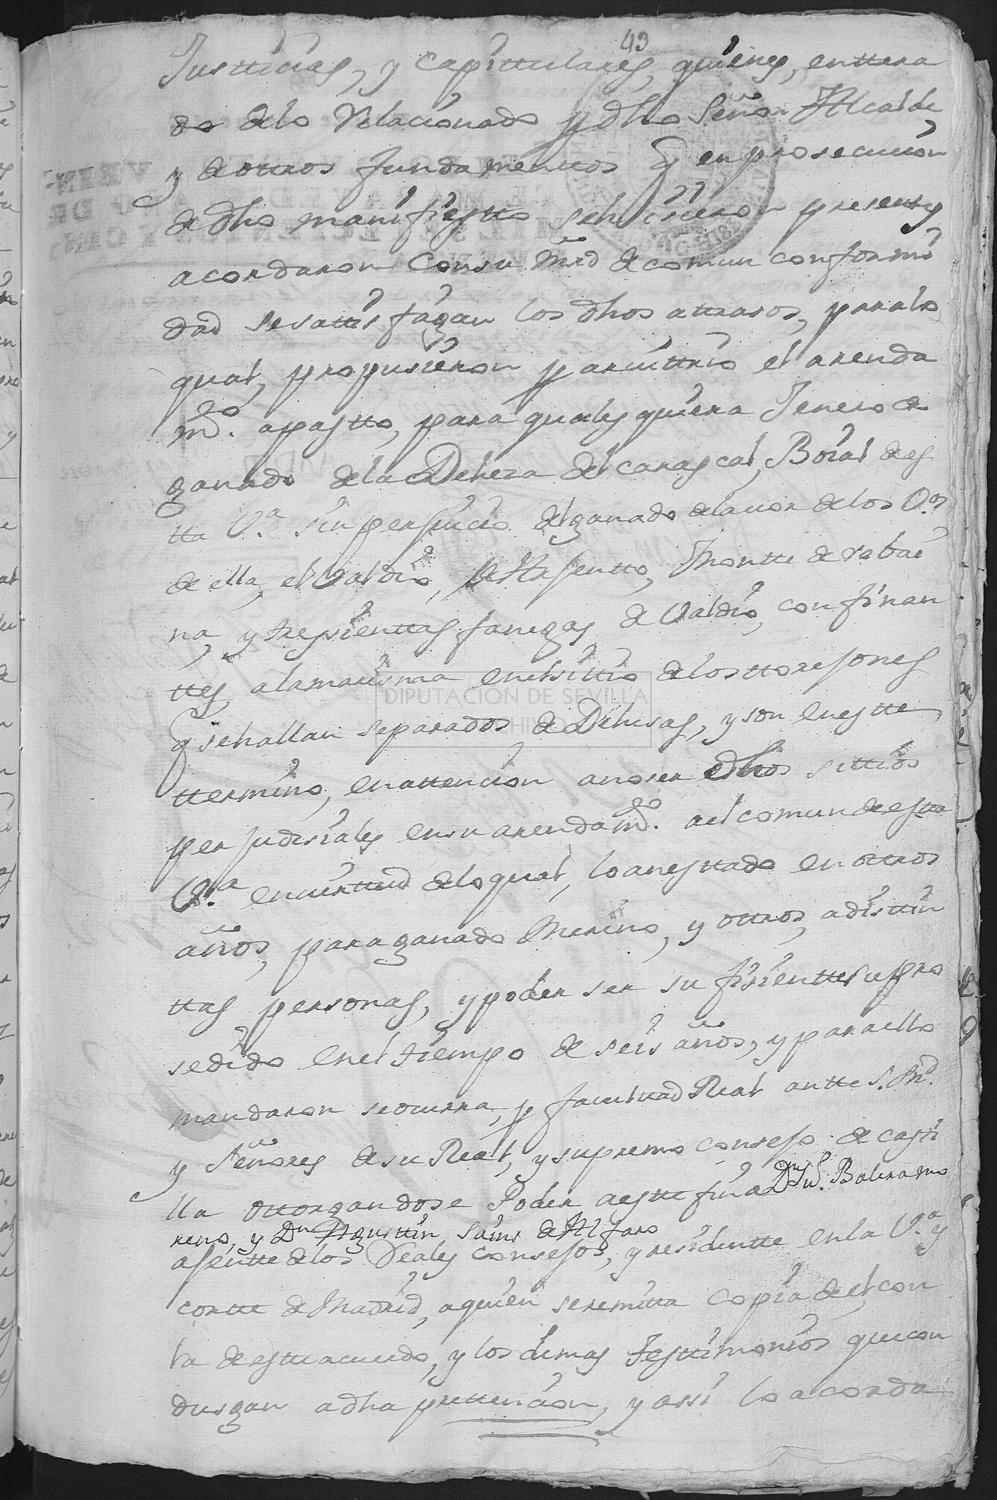 43
Justticias, y capittulares, quienes, enttera
do delo Relacionado y dho Señor Alcalde,
y de ottros fundamenttos q en prosecucion
de dho manifiestto sehisieron presentes
acordaron Consu Mrd de comun conformi
dad sesattisfagan los dhos attrasos, y para lo
qual, propusieron p arvittrio el arenda
mto. apastto, para qualesquiera Jenero de
ganado dela Deheza del carascal, Boial de es
tta Va. sin perjuicio del ganado delavor de los Vos
de ella, el Valdio, Monte de rabae
na, y tresienttas fanegas de Valdio, confinan
ttes alamisma enelsittio delos ttoresones
q sehallan separados de Dehesas, y son en estte
ttermino, en attencion anoser dhos sittios
perjudisiales ensu arendamto. al comun de estta
Va. en virttud delo qual, loanesttado en ottros
años, para ganado Merino, y ottros, adisttin
ttas personas, y poder ser sufisientte su pro
sedido enel tiempo de seis años, y para ello
mandaron seocurra, p facultad Real antte S. Md.
y Señores de su Real, y supremo consejo de casti
lla ottorgandose Poder aestte fin a Dn Ju. Balera mo
reno, y Dn Agusttin Sains de Alfaro
ajentte delos Reales Consejos, y residentte en la Va. y
cortte de Madrid, aquien seremitta copia del, con
la de estte acuerdo, y los demas testtimonios que con
dusgan adha prettencion, y assi lo acorda
DIPUTACION DE SEVILLA